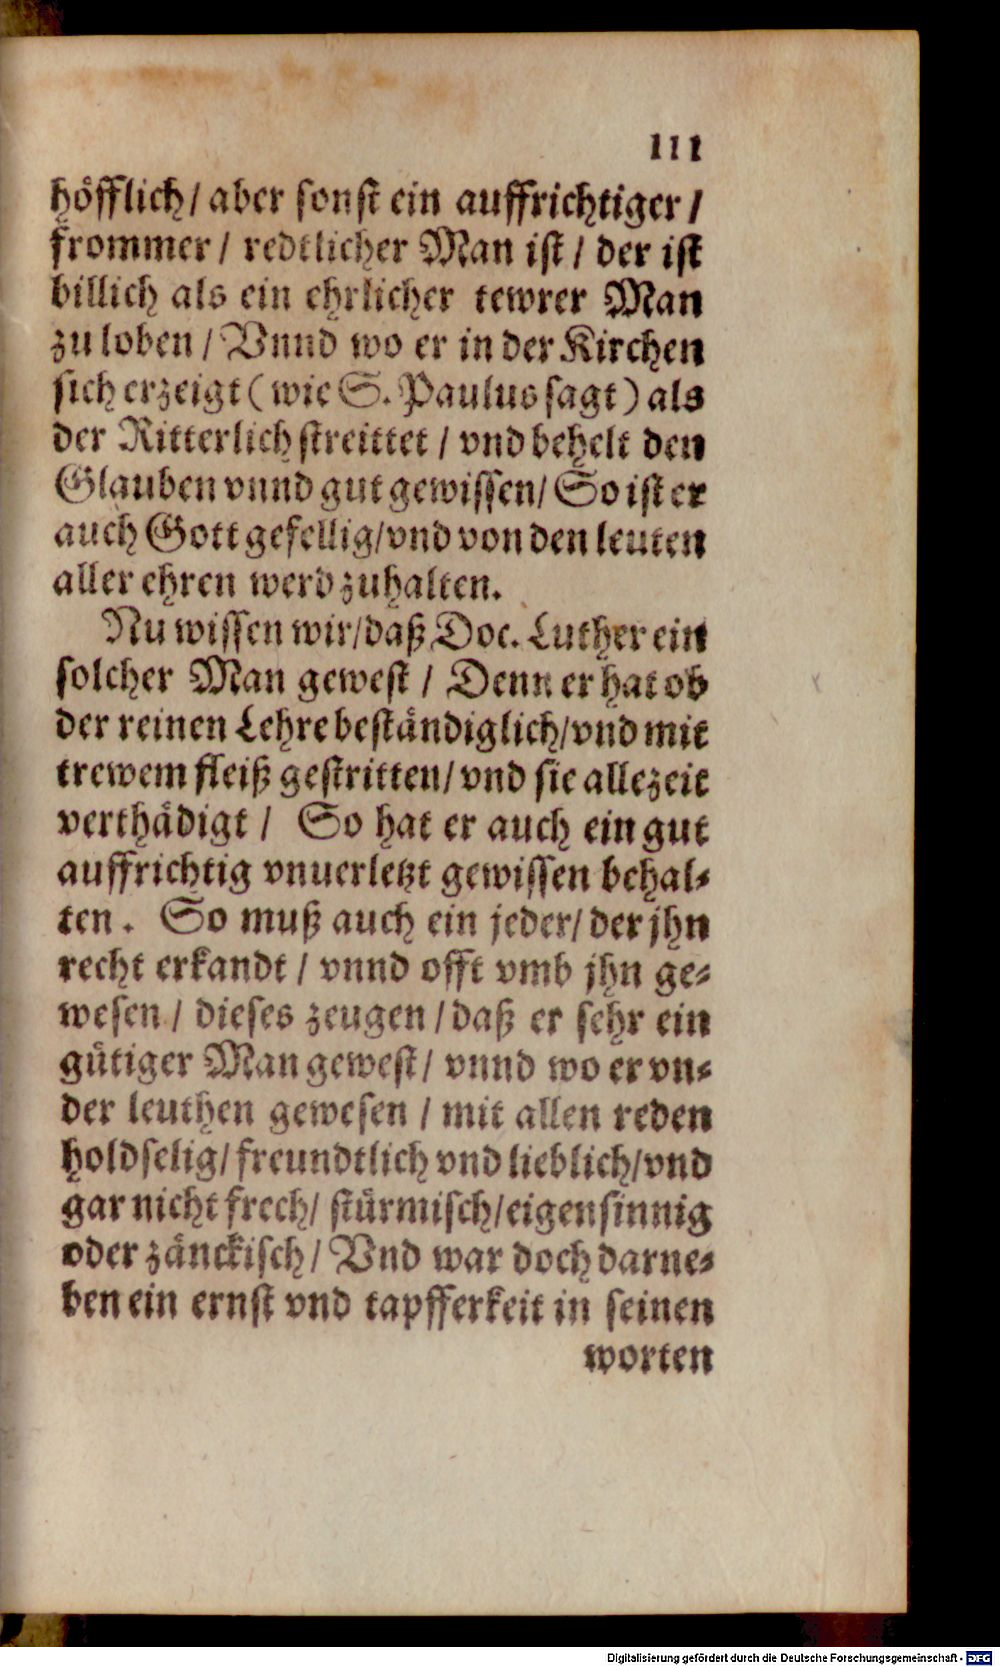 111
höfflich / aber sonst ein auffrichtiger /
frommer / redtlicher Man ist / der ist
billich als ein ehrlicher tewrer Man
zu loben / Vnnd wo er in der Kirchen
sich erzeigt ( wie S. Paulus sagt ) als
der Ritterlich streittet / vnd behelt den
Glauben vnnd gut gewissen / So ist er
auch Gott gefellig / vnd von den leuten
aller ehren werd zuhalten.
Nu wissen wir / daß Doc. Luther ein
solcher Man gewest / Denn er hat ob
der reinen Lehre beständiglich / vnd mit
trewem fleiß gestritten / vnd sie allezeit
verthädigt / So hat er auch ein gut
auffrichtig vnuerletzt gewissen behal-
ten. So muß auch ein jeder / der jhn
recht erkandt / vnnd offt vmb jhn ge-
wesen / dieses zeugen / daß er sehr ein
gütiger Man gewest / vnnd wo er vn-
der leuthen gewesen / mit allen reden
holdselig / freundtlich vnd lieblich / vnd
gar nicht frech / stürmisch / eigensinnig
oder zänckisch / Vnd war doch darne-
ben ein ernst vnd tapfferkeit in seinen
worten
Digitalisierung gefördert durch die Deutsche Forschungsgemeinschaft - DFG